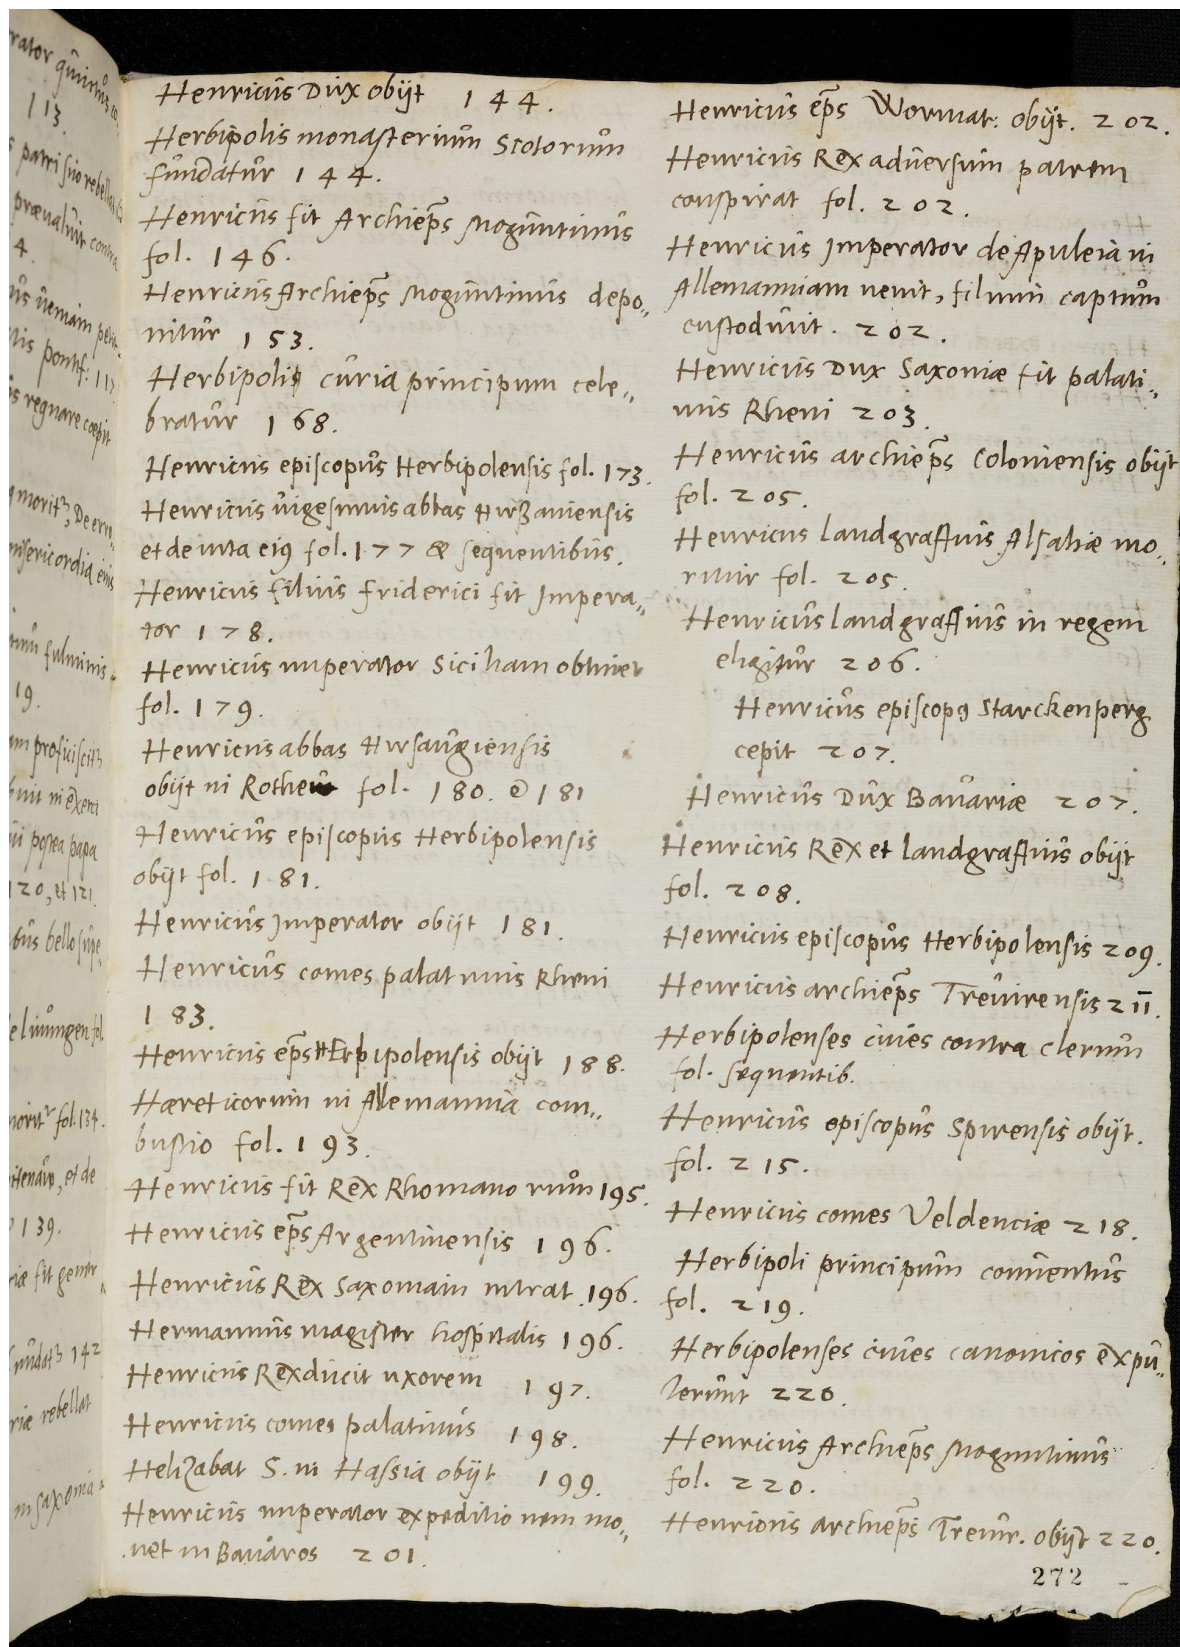 Henricus Dux obijt 144.
Herbipolis monasterium Scotorum
fundatur 144.
Henricus fit Archiep̃s Moguntinus
fol. 146.
Henricus Archiep̃s Moguntinus depo„
nitur 153.
Herbipolis curia principum cele„
bratur 168.
Henricus episcopus Herbipolensis fol. 173.
Henricus vigesimus abbas Hirzaniensis
et de vita eiꝰ fol. 177 & sequentibus.
Henricus filius Friderici fit Impera„
tor 178.
Henricus imperator Siciliam obtinet
fol. 179.
Henricus abbas Hirsaugiensis
obijt in fol. 180. & 181
Henricus episcopus Herbipolensis
obijt fol. 181.
Henricus Imperator obijt 181.
Henricus comes palatinus Rheni
183.
Henricus ep̃s Herbipolensis obijt 188.
Hæreticorum in Allemannia com„
bustio fol. 193.
Henricus fit Rex Rhomanorum 195.
Henricus ep̃s Argentinensis 196.
Henricus Rex Saxoniam intrat 196.
Hermannus magister hospitalis 196.
Henricus Rex ducit uxorem 197.
Henricus comes palatinus 198.
Helizabat S. in Hassia obijt 199.
Henricus imperator expeditionem mo„
uet in Bauaros 201.
Henricus ep̃s Wormat: obijt. 202.
Henricus Rex aduersum patrem
conspirat fol. 202.
Henricus Imperator de Apuleia in
Allemanniam uenit, filium captum
custodiuit. 202.
Henricus Dux Saxoniæ fit palati„
nus Rheni 203.
Henricus archiep̃s Coloniensis obijt
fol. 205.
Henricus landgraffius Alsatiæ mo„
ritur fol. 205.
Henricus landgraffius in regem
eligitur 206.
Henricus episcopꝰ Starckenperg
cepit 207.
Henricus Dux Bauariæ 207.
Henricus Rex et landgraffius obijt
fol. 208.
Henricus episcopus Herbipolensis 209.
Henricus archiep̃s Treuirensis 211.
Herbipolenses ciues contra clerum
fol. sequentib.
Henricus episcopus Spirensis obijt.
fol. 215.
Henricus comes Veldenciæ 218.
Herbipoli principum conuentus
fol. 219.
Herbipolenses ciues canonicos expu„
lerunt 220.
Henricus Archiep̃s Moguntinus
fol. 220.
Henricus archiep̃s Treuir. obijt 220.
272